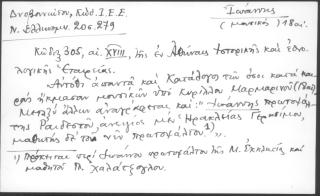 Δνοβουνιώτου, Κώδ. Ι.Ε.Ε.
Ν. Ελληνομν. 20 σ. 279
Ἰωάννης
(μουσικός) 18 αἰ.
Κώδιξ 305, αἰ. XVIII, τῆς ἐν Ἀθήναις Ἱστορικῆς καὶ Ἐθνο-
λογικῆς Ἑταιρείας.
Αὐτόθι ἀπαντᾷ καὶ Κατάλογος τῶν ὅσοι κατὰ και-
ροὺς ἤκμασαν μουσικῶν ὑπὸ Κυρίλλου Μαρμαρινοῦ (18 αἰ.)
Μεταξὺ ἄλλων ἀναγράφεται καί: "Ἰωάννης πρωτοψάλ-
της Ραιδεστοῦ, ἀνεψιὸς μὲν Ἡρακλείας Γερασίμου,
μαθητὴς δὲ τοῦ νῦν πρωτοψάλτου 1)".
1) Πρόκειται περὶ Ἰωάννου πρωτοψάλτου τῆς Μ. Ἐκκλησίας καὶ
μαθητοῦ Π. Χαλάτζογλου.